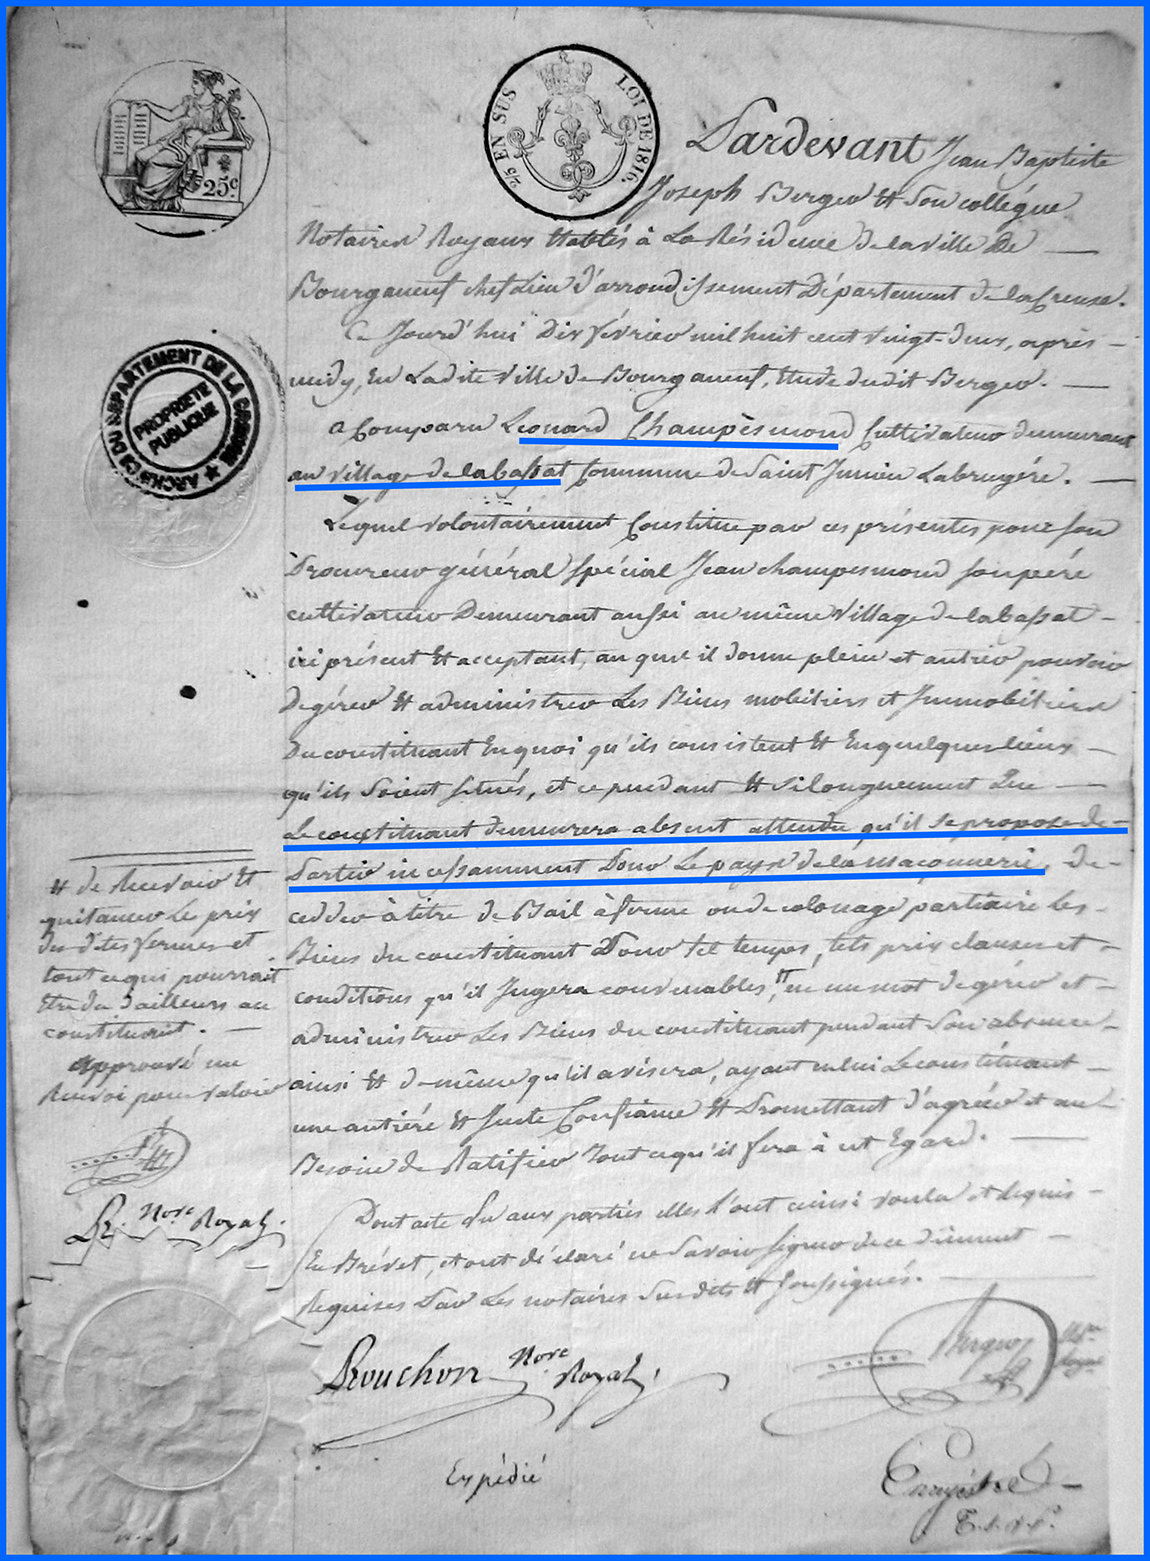 25c
2/5 EN SUS
LOI DE 1816.
Pardevant Jean Baptiste
Joseph Berger et Son collégue
Notaires Royaux établis à La Résidence de la ville de
Bourganeuf chef Lieu d'arrondissement Département de la Creuse.
Ce Jourd'hui Dix février mil huit cent vingt-deux, après
midy, En Ladite ville de Bourganeuf, Etude dudit Berger.
ARCHIVES DU DEPARTEMENT DE LA CREUSE
PROPRIETE PUBLIQUE
a Comparu Leonard Champèsmond Cultivateur demeurant
au village de labassat Commune de Saint Junien Labrugére.
Lequel volontairement Constitue par ces présentes pour son
Procureur général spécial Jean champesmond son pére
cultivateur Demeurant aussi au même village de labassat
ici présent et acceptant, auquel il donne plein et entier pouvoir
de gérer et administrer Les Biens mobiliers et Immobiliers
Du constituant En quoi qu'ils consistent et En quelques lieux
qu'ils Soient situés, et ce pendant et si longuement Que
Le constituant demeurera absent attendu qu'il se propose de
Partir incessamment Pour Le pays de la maçonnerie, de
cedder à titre de Bail à ferme ou de colonage partiaire les
Biens du constituant Pour tel temps, tels prix clauses et
conditions qu'il Jugera convenables, et en un mot de gérer et
administrer Les Biens du constituant pendant Son absence
ainsi et de même qu'il avisera, ayant en lui Le constituant
une antiére et Juste Confiance et Promettant d'agréer et au
Besoin de Ratifier Tout ce qu'il fera à cet Egard.
et de Recevoir et
quitancer Le prix
des dites fermes et
tout ce qui pourrait
être du d'ailleurs au
constituant.
approuvé un
Renvoi pour valoir
Nore Royal.
Dont acte Du aux parties elles l'ont ainsi voulu et Requis
En Brévet, et ont déclaré ne Savoir signer de ce Dûment
Requises Par Les notaires Susdits et Soussignés.
Rouchon Nore Royal.
Berger Nre Royal
Expédié